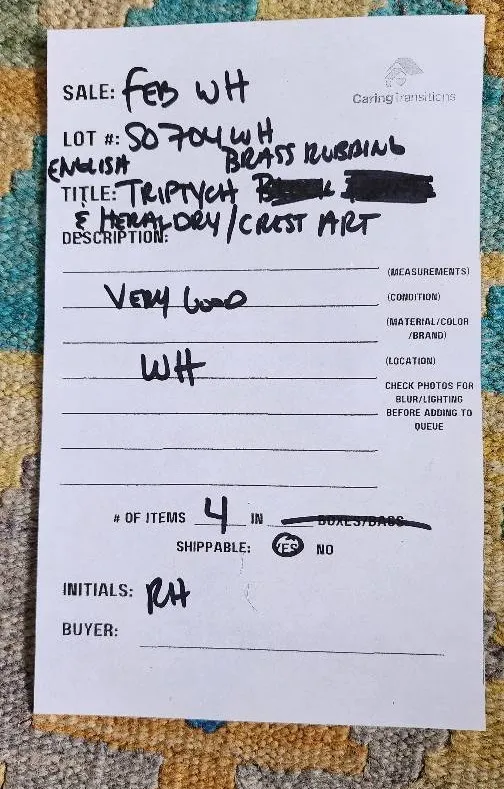 SALE: FEB WH
CaringTransitions
LOT #: SO704WH
ENGLISH BRASS RUBBING
TITLE: TRIPTYCH
& HERALDRY/CREST ART
DESCRIPTION:
(MEASUREMENTS)
VERY GOOD (CONDITION)
(MATERIAL/COLOR
/BRAND)
WH (LOCATION)
CHECK PHOTOS FOR
BLUR/LIGHTING
BEFORE ADDING TO
QUEUE
# OF ITEMS 4 IN BOXES/BAGS
SHIPPABLE: YES NO
INITIALS: RH
BUYER: